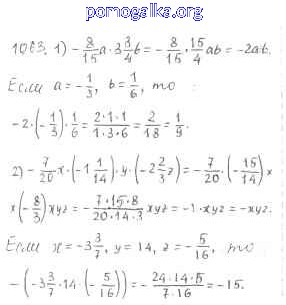 pomogalka.org
1063. 1) -8/15 a · 3 3/4 b = -8/15 · 15/4 ab = -2ab.
Если a = -1/3, b = 1/6, то
-2 · (-1/3) · 1/6 = 2·1·1/1·3·6 = 2/18 = 1/9.
2) -7/20 x · (-1 1/14) · y · (-2 2/3 z) = -7/20 · (-15/14) ×
× (-8/3) xyz = -7·15·8/20·14·3 xyz = -1 · xyz = -xyz.
Если x = -3 3/7, y = 14, z = -5/16, то
-(-3 3/7 · 14 · (-5/16)) = -24·14·5/7·16 = -15.